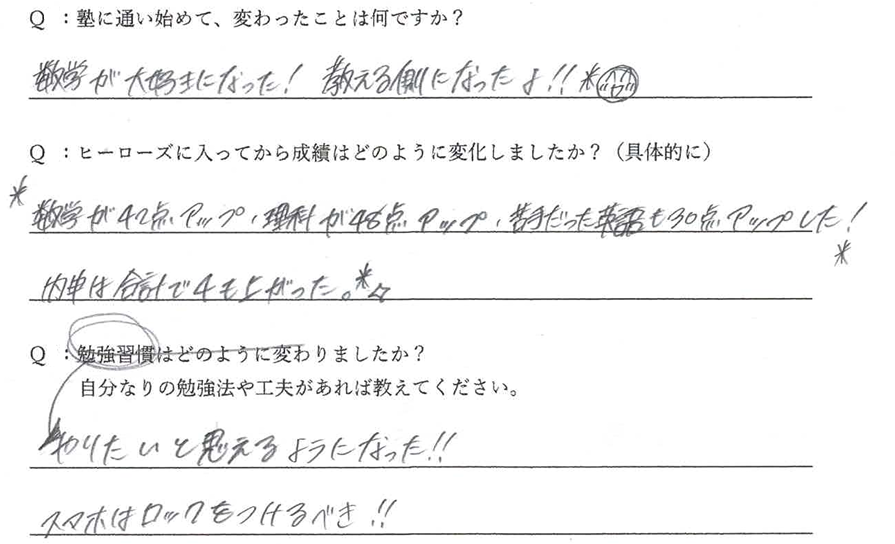 Q ：塾に通い始めて、変わったことは何ですか？
数学が大好きになった！ 教える側になったよ！！*
Q ：ヒーローズに入ってから成績はどのように変化しましたか？（具体的に）
*数学が42点アップ、理科が48点アップ、苦手だった英語も30点アップした！*
内申は合計で4も上がった。*☆
Q ：勉強習慣はどのように変わりましたか？
自分なりの勉強法や工夫があれば教えてください。
やりたいと思えるようになった！！
スマホはロックをつけるべき！！